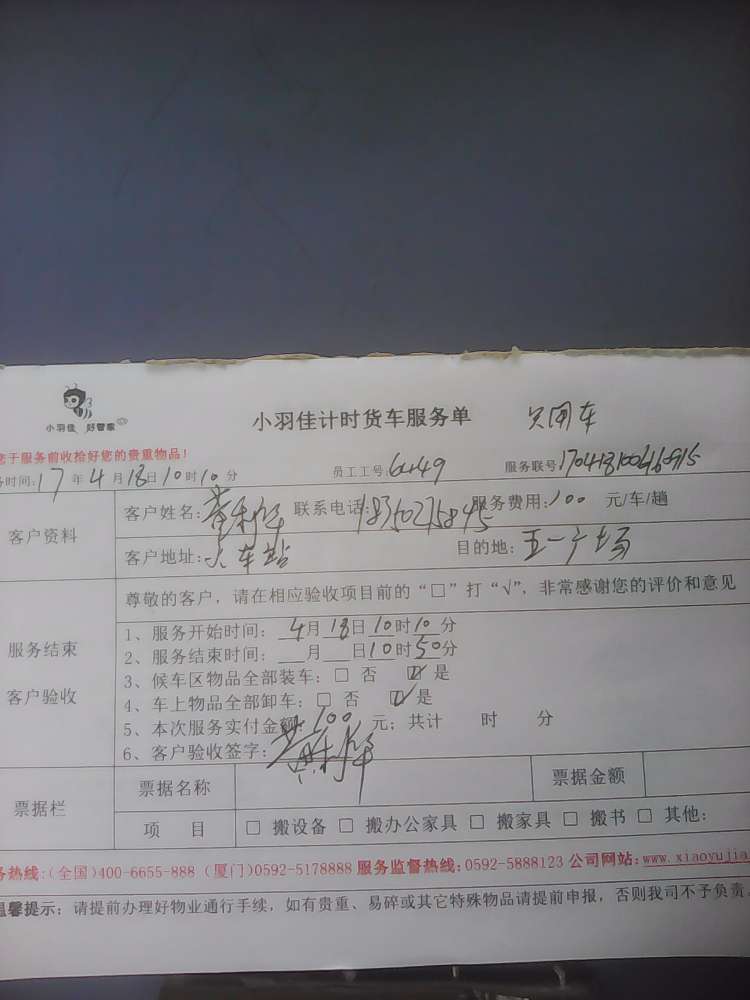 小羽佳 好管家
小羽佳计时货车服务单 只用车
您于服务前收拾好您的贵重物品!
务时间:17年4月18日10时10分 员工工号:6449 服务联号17041810046
客户资料
客户姓名: 联系电话:18350275845 服务费用:100 元/车/趟
客户地址:火车站 目的地:五一广场
服务结束
客户验收
尊敬的客户,请在相应验收项目前的“□”打“√”,非常感谢您的评价和意见
1、服务开始时间:4月18日10时10分
2、服务结束时间:__月__日10时50分
3、候车区物品全部装车:□ 否 ☑ 是
4、车上物品全部卸车:□ 否 ☑ 是
5、本次服务实付金额:100 元;共计 时 分
6、客户验收签字:
票据栏
票据名称 票据金额
项 目 □ 搬设备 □ 搬办公家具 □ 搬家具 □ 搬书 □ 其他:
务热线:(全国)400-6655-888 (厦门)0592-5178888 服务监督热线:0592-5888123 公司网站:www.xiaoyujia
温馨提示:请提前办理好物业通行手续,如有贵重、易碎或其它特殊物品请提前申报,否则我司不予负责